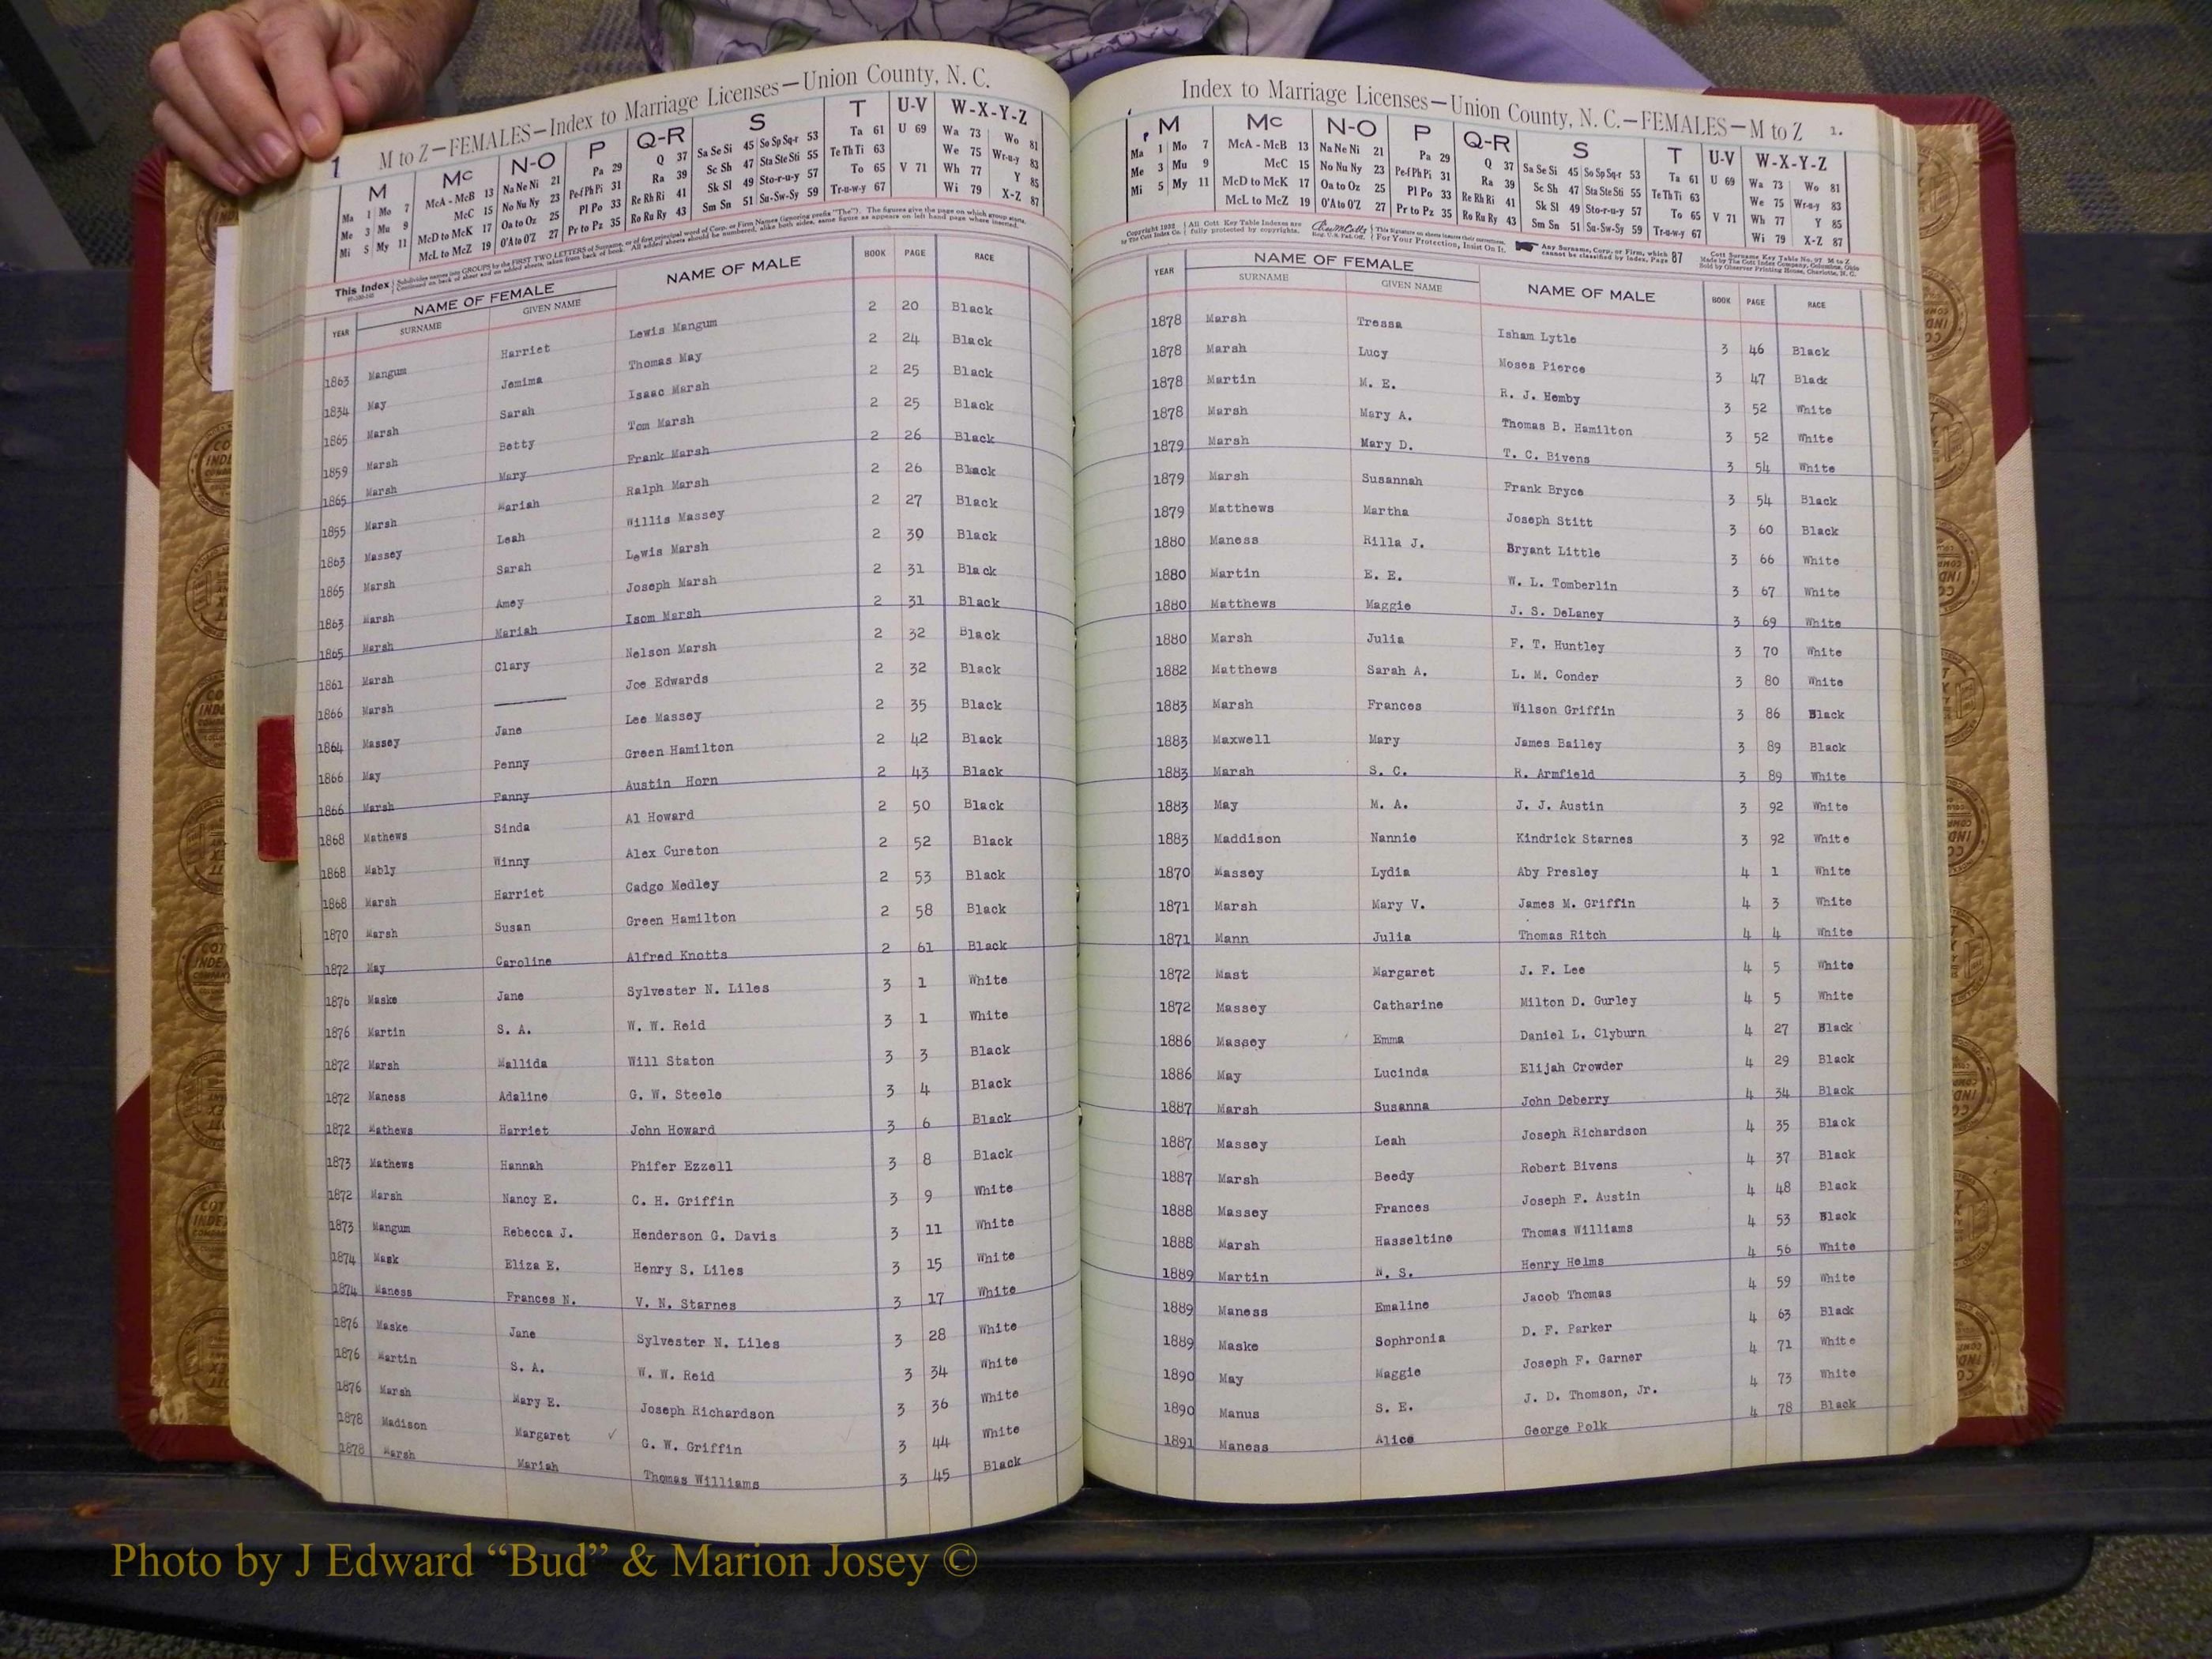 1 M to Z—FEMALES—Index to Marriage Licenses—Union County, N. C.
M Mc N-O P Q-R S T U-V W-X-Y-Z
Ma 1 Mo 7 McA - McB 13 Na Ne Ni 21 Pa 29 Q 37 Sa Se Si 45 So Sp Sq-r 53 Ta 61 U 69 Wa 73 Wo 81
Me 3 Mu 9 McC 15 No Nu Ny 23 Pe-f Ph Pi 31 Ra 39 Sc Sh 47 Sta Ste Sti 55 Te Th Ti 63 We 75 Wr-u-y 83
Mi 5 My 11 McD to McK 17 Oa to Oz 25 Pl Po 33 Re Rh Ri 41 Sk Sl 49 Sto-r-u-y 57 To 65 V 71 Wh 77 Y 85
McL to McZ 19 O'A to O'Z 27 Pr to Pz 35 Ro Ru Ry 43 Sm Sn 51 Su-Sw-Sy 59 Tr-u-w-y 67 Wi 79 X-Z 87
This Index
YEAR NAME OF FEMALE NAME OF MALE BOOK PAGE RACE
SURNAME GIVEN NAME
1863 Mangum Harriet Lewis Mangum 2 20 Black
1834 May Jemima Thomas May 2 24 Black
1865 Marsh Sarah Isaac Marsh 2 25 Black
1859 Marsh Betty Tom Marsh 2 25 Black
1865 Marsh Mary Frank Marsh 2 26 Black
1855 Marsh Mariah Ralph Marsh 2 26 Black
1863 Massey Leah Willis Massey 2 27 Black
1865 Marsh Sarah Lewis Marsh 2 30 Black
1863 Marsh Amey Joseph Marsh 2 31 Black
1865 Marsh Mariah Isom Marsh 2 31 Black
1861 Marsh Clary Nelson Marsh 2 32 Black
1866 Marsh Joe Edwards 2 32 Black
1864 Massey Jane Lee Massey 2 35 Black
1866 May Penny Green Hamilton 2 42 Black
1866 Marsh Fanny Austin Horn 2 43 Black
1868 Mathews Sinda Al Howard 2 50 Black
1868 Mably Winny Alex Cureton 2 52 Black
1868 Marsh Harriet Cadgo Medley 2 53 Black
1870 Marsh Susan Green Hamilton 2 58 Black
1872 May Caroline Alfred Knotts 2 61 Black
1876 Maske Jane Sylvester N. Liles 3 1 White
1876 Martin S. A. W. W. Reid 3 1 White
1872 Marsh Mallida Will Staton 3 3 Black
1872 Maness Adaline G. W. Steele 3 4 Black
1872 Mathews Harriet John Howard 3 6 Black
1873 Mathews Hannah Phifer Ezzell 3 8 Black
1872 Marsh Nancy E. C. H. Griffin 3 9 White
1873 Mangum Rebecca J. Henderson G. Davis 3 11 White
1874 Mask Eliza E. Henry S. Liles 3 15 White
1874 Maness Frances N. V. N. Starnes 3 17 White
1876 Maske Jane Sylvester N. Liles 3 28 White
1876 Martin S. A. W. W. Reid 3 34 White
1876 Marsh Mary E. Joseph Richardson 3 36 White
1878 Madison Margaret ✓ G. W. Griffin 3 44 White
1878 Marsh Mariah Thomas Williams 3 45 Black
Index to Marriage Licenses—Union County, N. C.—FEMALES—M to Z 1.
M Mc N-O P Q-R S T U-V W-X-Y-Z
Ma 1 Mo 7 McA - McB 13 Na Ne Ni 21 Pa 29 Q 37 Sa Se Si 45 So Sp Sq-r 53 Ta 61 U 69 Wa 73 Wo 81
Me 3 Mu 9 McC 15 No Nu Ny 23 Pe-f Ph Pi 31 Ra 39 Sc Sh 47 Sta Ste Sti 55 Te Th Ti 63 We 75 Wr-u-y 83
Mi 5 My 11 McD to McK 17 Oa to Oz 25 Pl Po 33 Re Rh Ri 41 Sk Sl 49 Sto-r-u-y 57 To 65 V 71 Wh 77 Y 85
McL to McZ 19 O'A to O'Z 27 Pr to Pz 35 Ro Ru Ry 43 Sm Sn 51 Su-Sw-Sy 59 Tr-u-w-y 67 Wi 79 X-Z 87
All Cott Key Table Indexes are fully protected by copyrights. For Your Protection, Insist On It. Any Surname, Corp. or Firm, which cannot be classified by Index, Page 87
YEAR NAME OF FEMALE NAME OF MALE BOOK PAGE RACE
SURNAME GIVEN NAME
1878 Marsh Tressa Isham Lytle 3 46 Black
1878 Marsh Lucy Moses Pierce 3 47 Black
1878 Martin M. E. R. J. Hemby 3 52 White
1878 Marsh Mary A. Thomas B. Hamilton 3 52 White
1879 Marsh Mary D. T. C. Bivens 3 54 White
1879 Marsh Susannah Frank Bryce 3 54 Black
1879 Matthews Martha Joseph Stitt 3 60 Black
1880 Maness Rilla J. Bryant Little 3 66 White
1880 Martin E. E. W. L. Tomberlin 3 67 White
1880 Matthews Maggie J. S. DeLaney 3 69 White
1880 Marsh Julia F. T. Huntley 3 70 White
1882 Matthews Sarah A. L. M. Conder 3 80 White
1883 Marsh Frances Wilson Griffin 3 86 Black
1883 Maxwell Mary James Bailey 3 89 Black
1883 Marsh S. C. R. Armfield 3 89 White
1883 May M. A. J. J. Austin 3 92 White
1883 Maddison Nannie Kindrick Starnes 3 92 White
1870 Massey Lydia Aby Presley 4 1 White
1871 Marsh Mary V. James M. Griffin 4 3 White
1871 Mann Julia Thomas Ritch 4 4 White
1872 Mast Margaret J. F. Lee 4 5 White
1872 Massey Catharine Milton D. Gurley 4 5 White
1886 Massey Emma Daniel L. Clyburn 4 27 Black
1886 May Lucinda Elijah Crowder 4 29 Black
1887 Marsh Susanna John Deberry 4 34 Black
1887 Massey Leah Joseph Richardson 4 35 Black
1887 Marsh Beedy Robert Bivens 4 37 Black
1888 Massey Frances Joseph F. Austin 4 48 Black
1888 Marsh Hasseltine Thomas Williams 4 53 Black
1889 Martin N. S. Henry Helms 4 56 White
1889 Maness Emaline Jacob Thomas 4 59 White
1889 Maske Sophronia D. F. Parker 4 63 Black
1890 May Maggie Joseph F. Garner 4 71 White
1890 Manus S. E. J. D. Thomson, Jr. 4 73 White
1891 Maness Alice George Polk 4 78 Black
Photo by J Edward “Bud” & Marion Josey ©